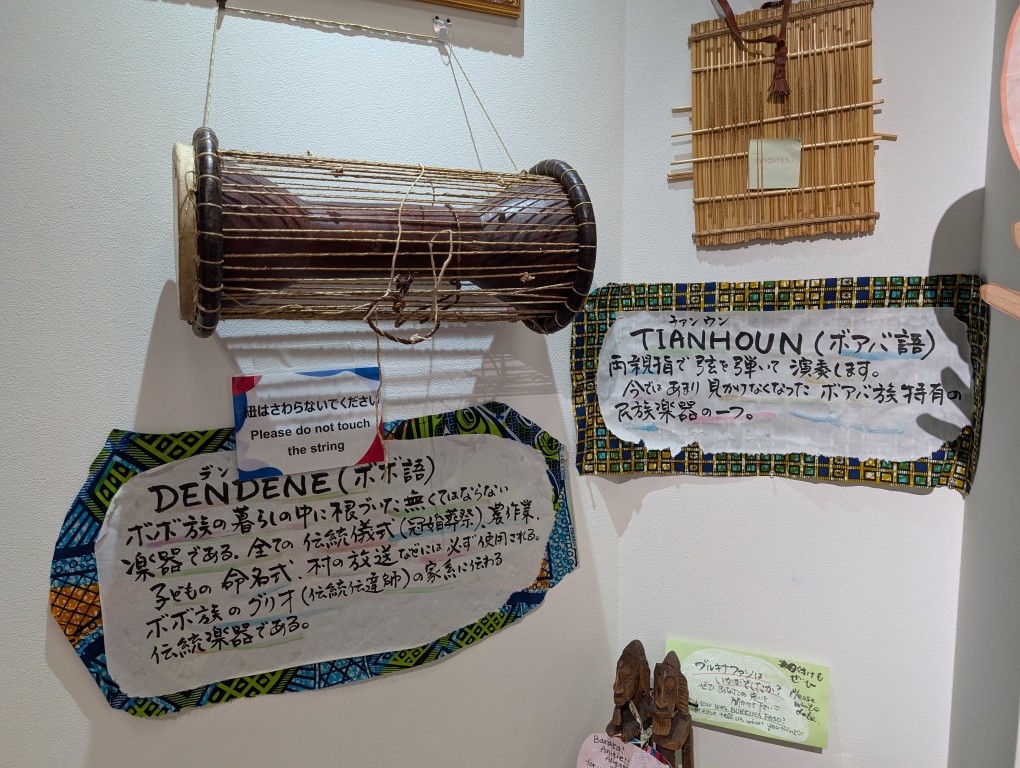 紐はさわらないでください
Please do not touch
the string
デン
DENDENE (ボボ語)
ボボ族の暮らしの中に根づいた無くてはならない
楽器である。全ての伝統儀式(冠婚葬祭)、農作業、
子どもの命名式、村の放送などには必ず使用される。
ボボ族のグリオ(伝統伝達師)の家系に伝わる
伝統楽器である。
チァン ウン
TIANHOUN (ボアバ語)
両親指で弦を弾いて演奏します。
今ではあまり見かけなくなったボアバ族特有の
民族楽器の一つ。
ブルキナファソは
いかがでしたか?
ぜひあなたの思いを
聞かせて下さい♡
How was BURKINA FASO?
Please tell us what you think♡
ぜひ
Please
write
date.
Baraka!